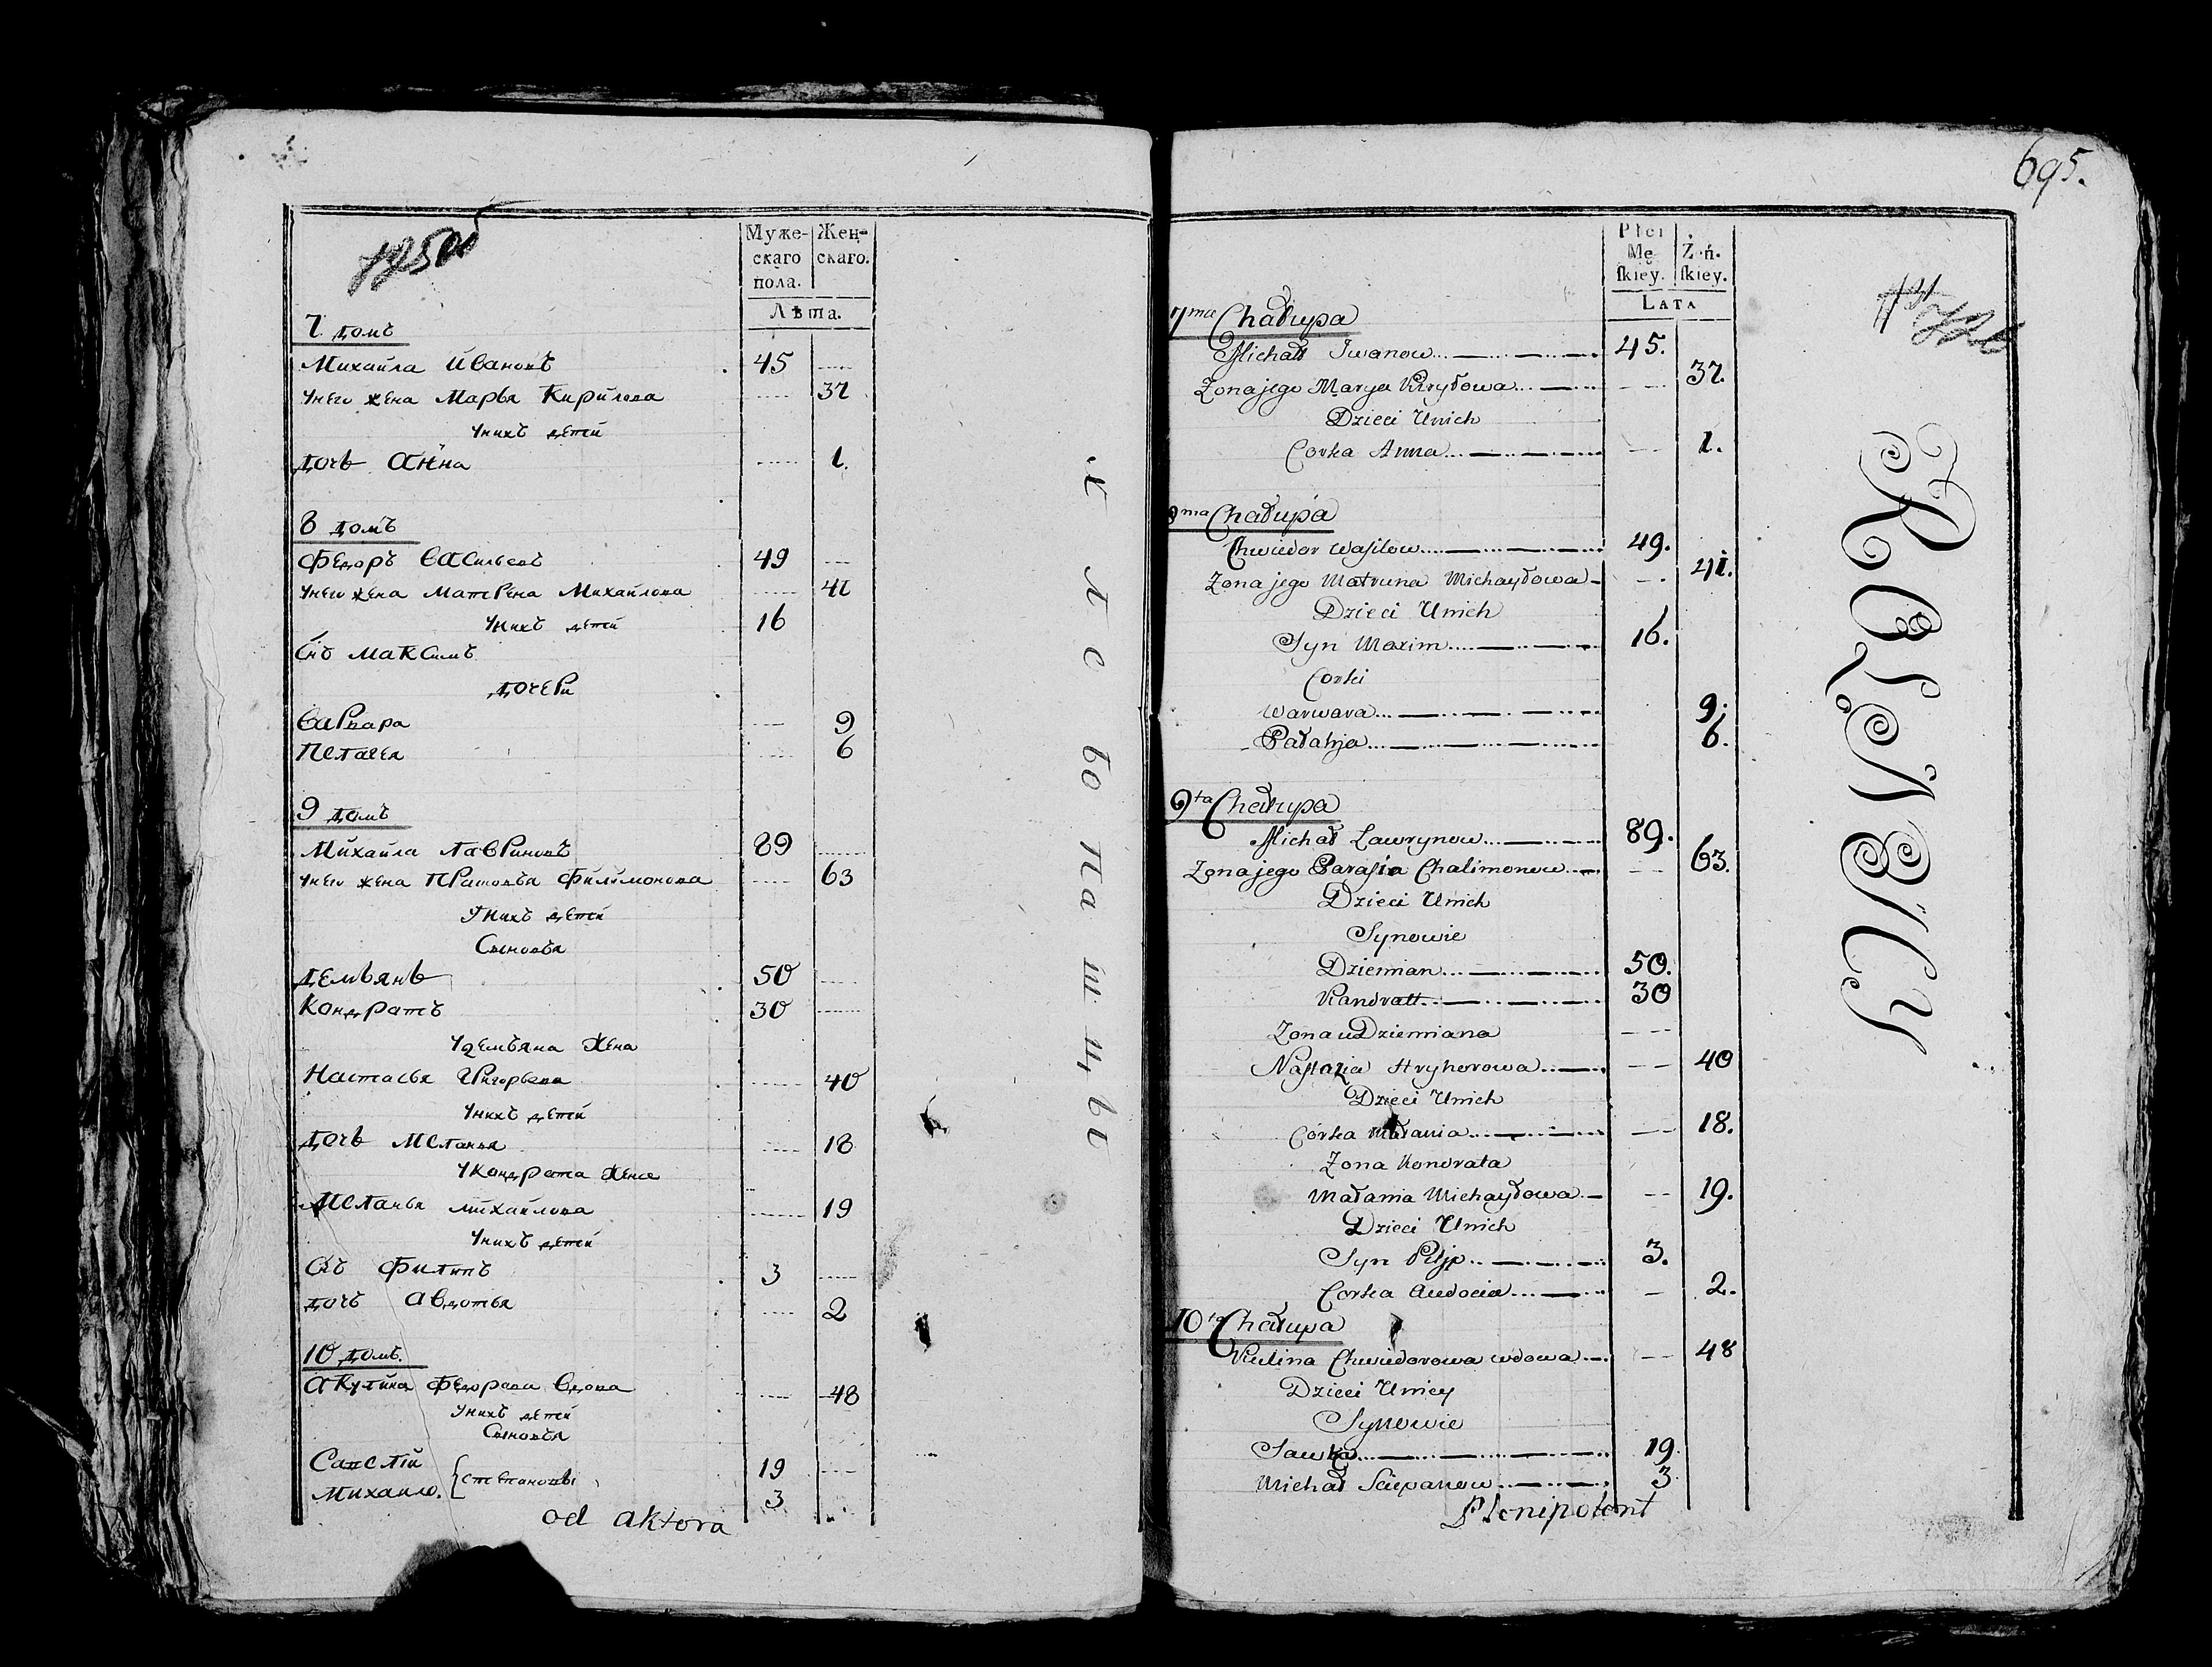 Муже-
скаго
пола.
Жен-
скаго.
Лѣта.
7 домъ
Михайла Ивановъ 45
унего жена Марья Кирилова 37
унихъ детей
дочь Анна 1.
8 домъ
Федоръ Васильевъ 49
унего жена Матрена Михайлова 41
унихъ детей 16
Снъ Максимъ
дочери
Варвара 9
Пелагея 6
9 домъ
Михайла Лавриновъ 89
унего жена Прасковья Филимонова 63
унихъ детей
Сыновья
Демьянъ 50
Кондратъ 30
удемьяна жена
Настасья Григорьева 40
унихъ детей
дочь Меланья 18
укондрата жена
Меланья Михайлова 19
унихъ детей
Снъ Филипъ 3
дочь Авдотья 2
10 домъ.
Акулина Федорава вдова 48
унихъ детей
Сыновья
Савелій 19
Михайло. } степановы 3
od aktora
хлебопашцы
695.
Płci
Mę
ſkiey.
Żeń.
ſkiey.
Lata
7ma Chałupa
Michał Iwanow 45.
Zona jego Marya Kiryłowa 37.
Dzieci Unich
Corka Anna 1.
8ma Chałupa
Chwiedor Wasilow 49.
Zona jego Matruna Michayłowa 41.
Dzieci Unich
Syn Maxim 16.
Corki
Warwara 9.
Pałahja 6.
9ta Chałupa
Michał Lawrynow 89.
Zona jego Parasia Chalimonow 63.
Dzieci Unich
Synowie
Dziemian 50.
Kandratt 30
Zona u Dziemiana
Nastazia Hryhorowa 40
Dzieci Unich
Córka Małania 18.
Zona Kondrata
Małania Michayłowa 19.
Dzieci Unich
Syn Pilip 3.
Corka Audocia 2.
10ta Chałupa
Kulina Chwiedorowa wdowa 48
Dzieci Uniey
Synowie
Sawka 19.
Michał Sciepanow 3
Plenipotent
ROLNICY